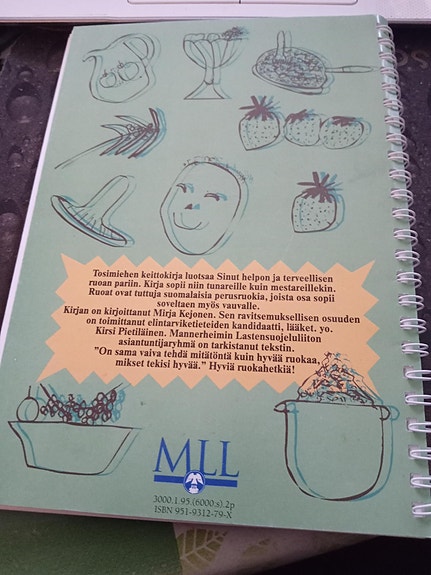 Tosimiehen keittokirja luotsaa Sinut helpon ja terveellisen
ruoan pariin. Kirja sopii niin tunareille kuin mestareillekin.
Ruoat ovat tuttuja suomalaisia perusruokia, joista osa sopii
soveltaen myös vauvalle.
Kirjan on kirjoittanut Mirja Kejonen. Sen ravitsemuksellisen osuuden
on toimittanut elintarviketieteiden kandidaatti, lääket. yo.
Kirsi Pietiläinen. Mannerheimin Lastensuojeluliiton
asiantuntijaryhmä on tarkistanut tekstin.
"On sama vaiva tehdä mitätöntä kuin hyvää ruokaa,
mikset tekisi hyvää." Hyviä ruokahetkiä!
MLL
3000.1.95.(6000:s).2p
ISBN 951-9312-79-X